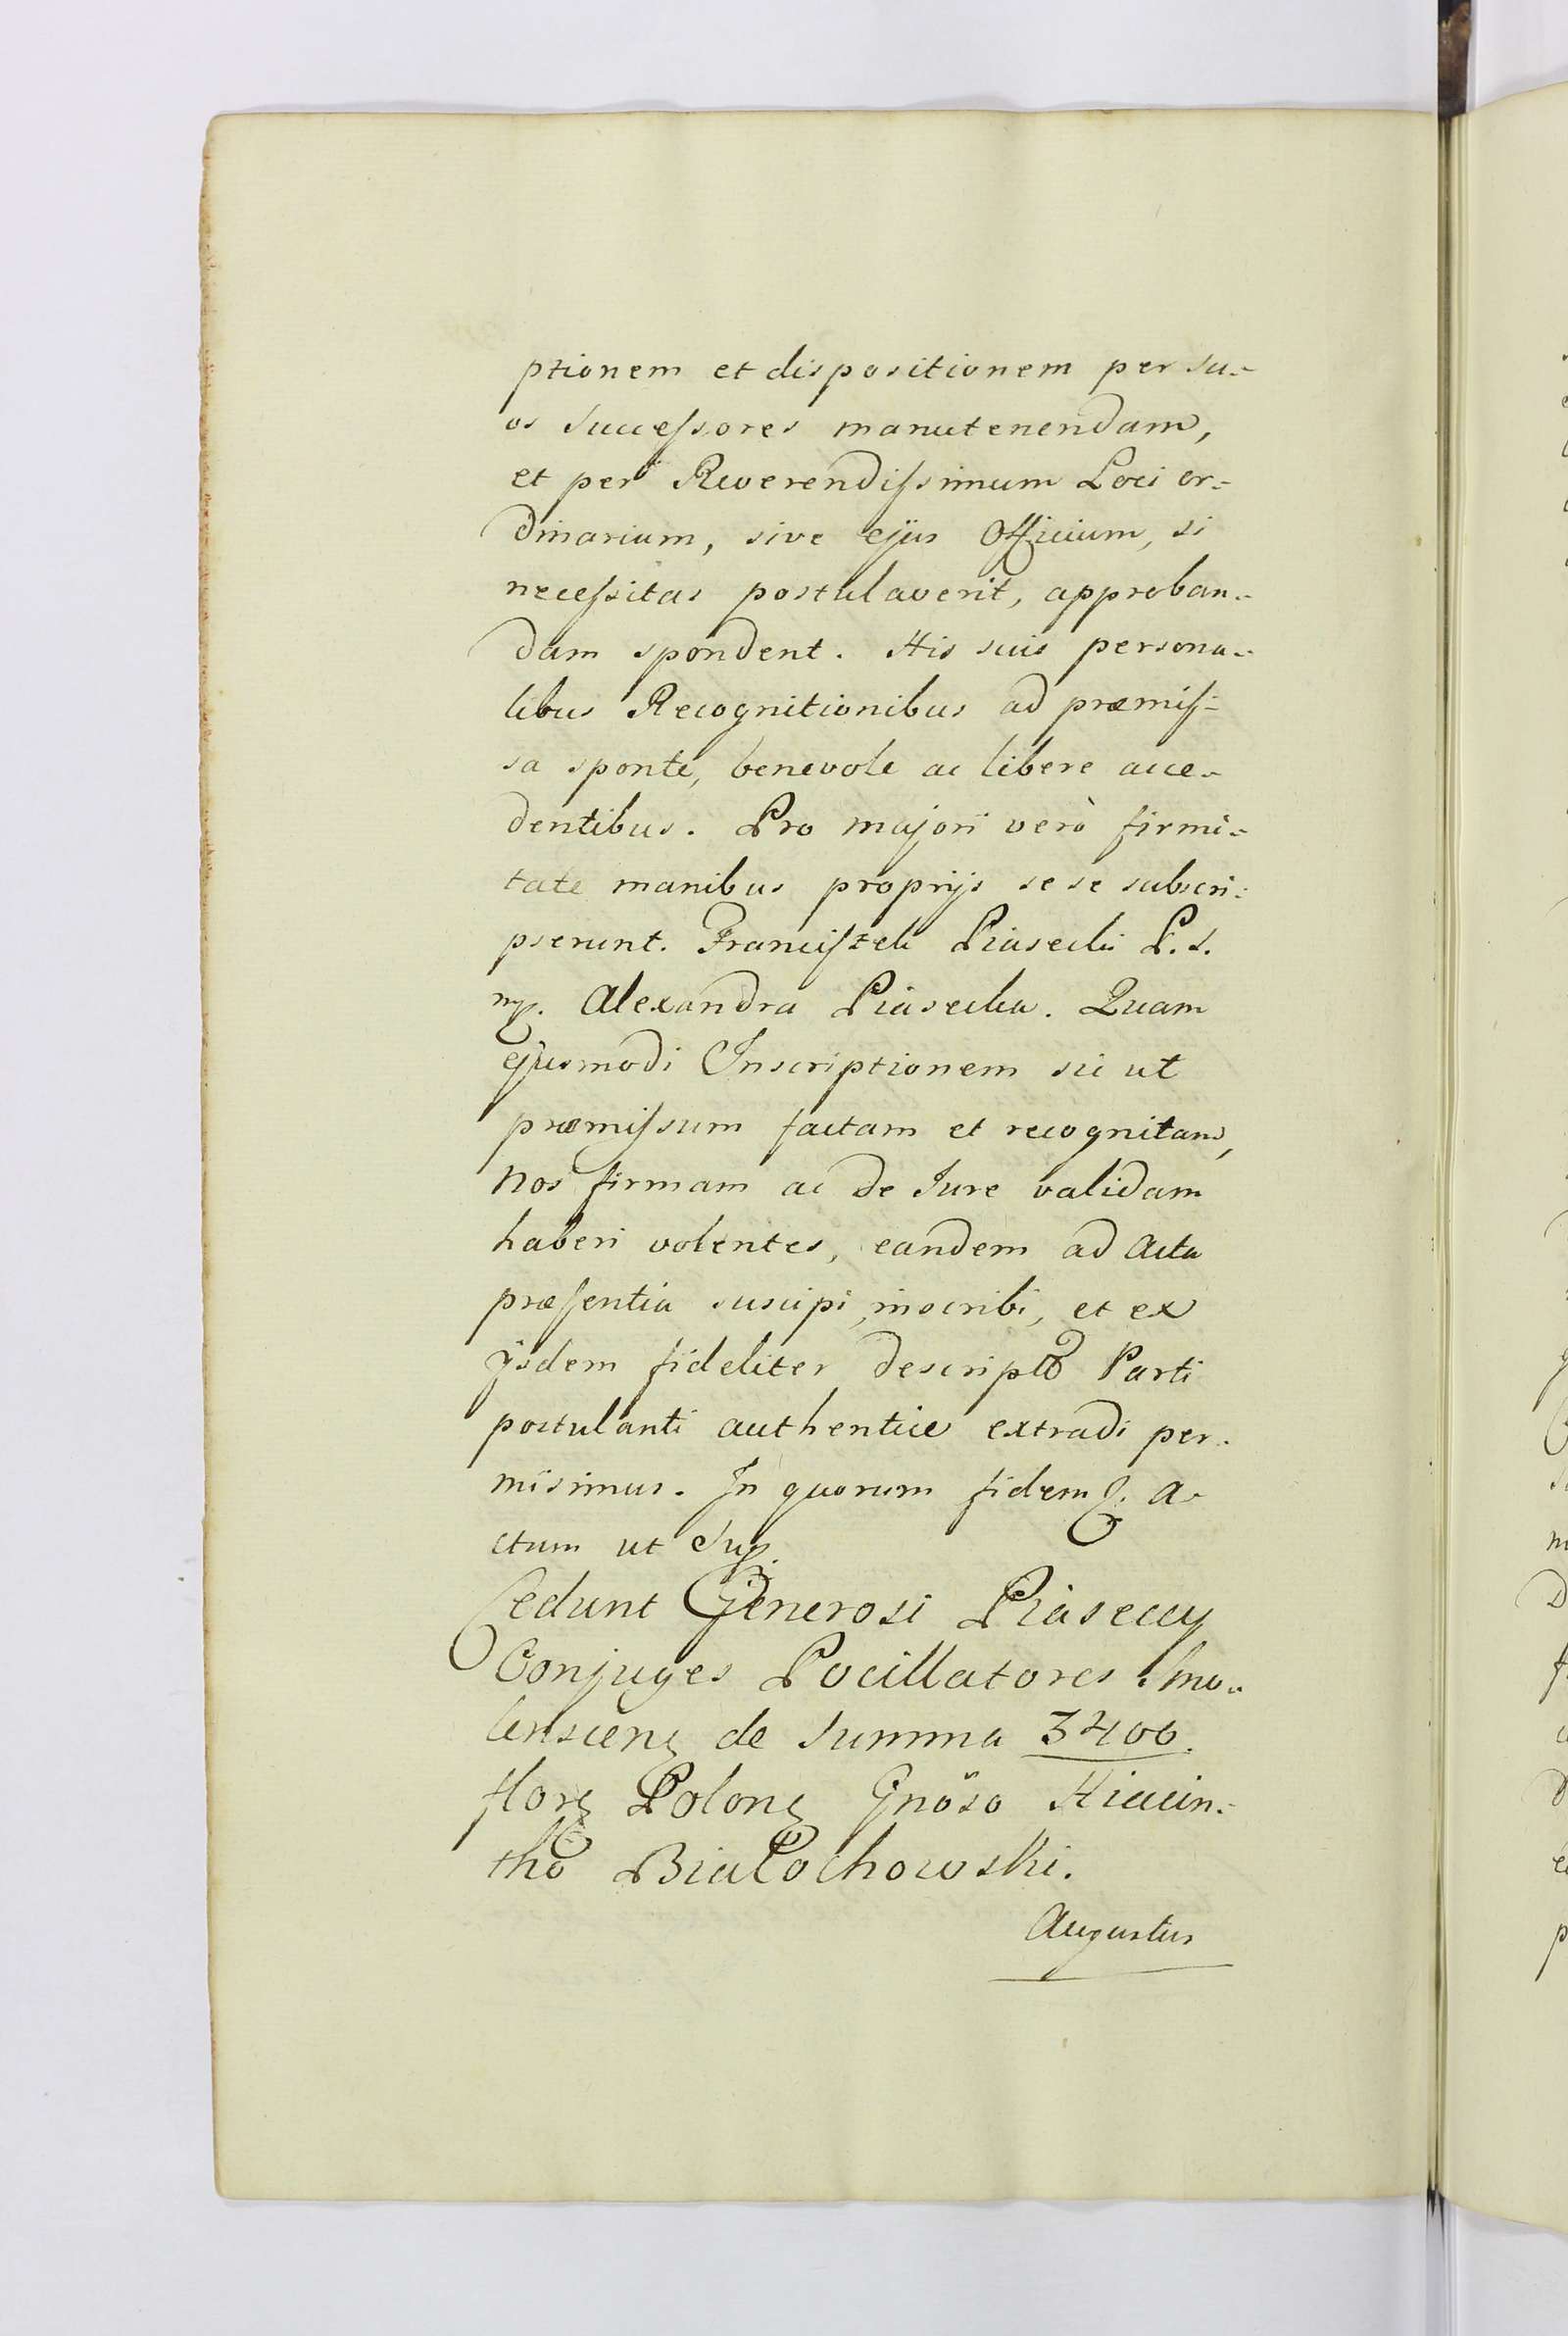 ptionem et dispositionem per su-
os Successores manutenendam,
et per Reverendissimum Loci or-
dinarium, sive ejus Officium, si
necessitas postulaverit, approban-
dam spondent. His suis persona-
libus Recognitionibus ad præmis-
sa sponte, benevole ac libere acce-
dentibus. Pro majori verò firmi-
tate manibus proprijs sese subscri-
pserunt. Franciszek Piasecki P. S.
mp. Alexandra Piasecka. Quam
ejusmodi Inscriptionem sic ut
præmissum factam et recognitam,
Nos firmam ac de Jure validam
haberi volentes, eandem ad Acta
præsentia suscipi, inscribi, et ex
ijsdem fideliter descripto Parti
postulanti authentice extradi per-
misimus. In quorum fidem A-
ctum ut Sup.
Cedunt Generosi Piaseccy
Conjuges Pocillatores Smo-
lenscens de Summa 3400.
flors Polons Gnoso Hiacin-
tho Białochowski.
Augustus